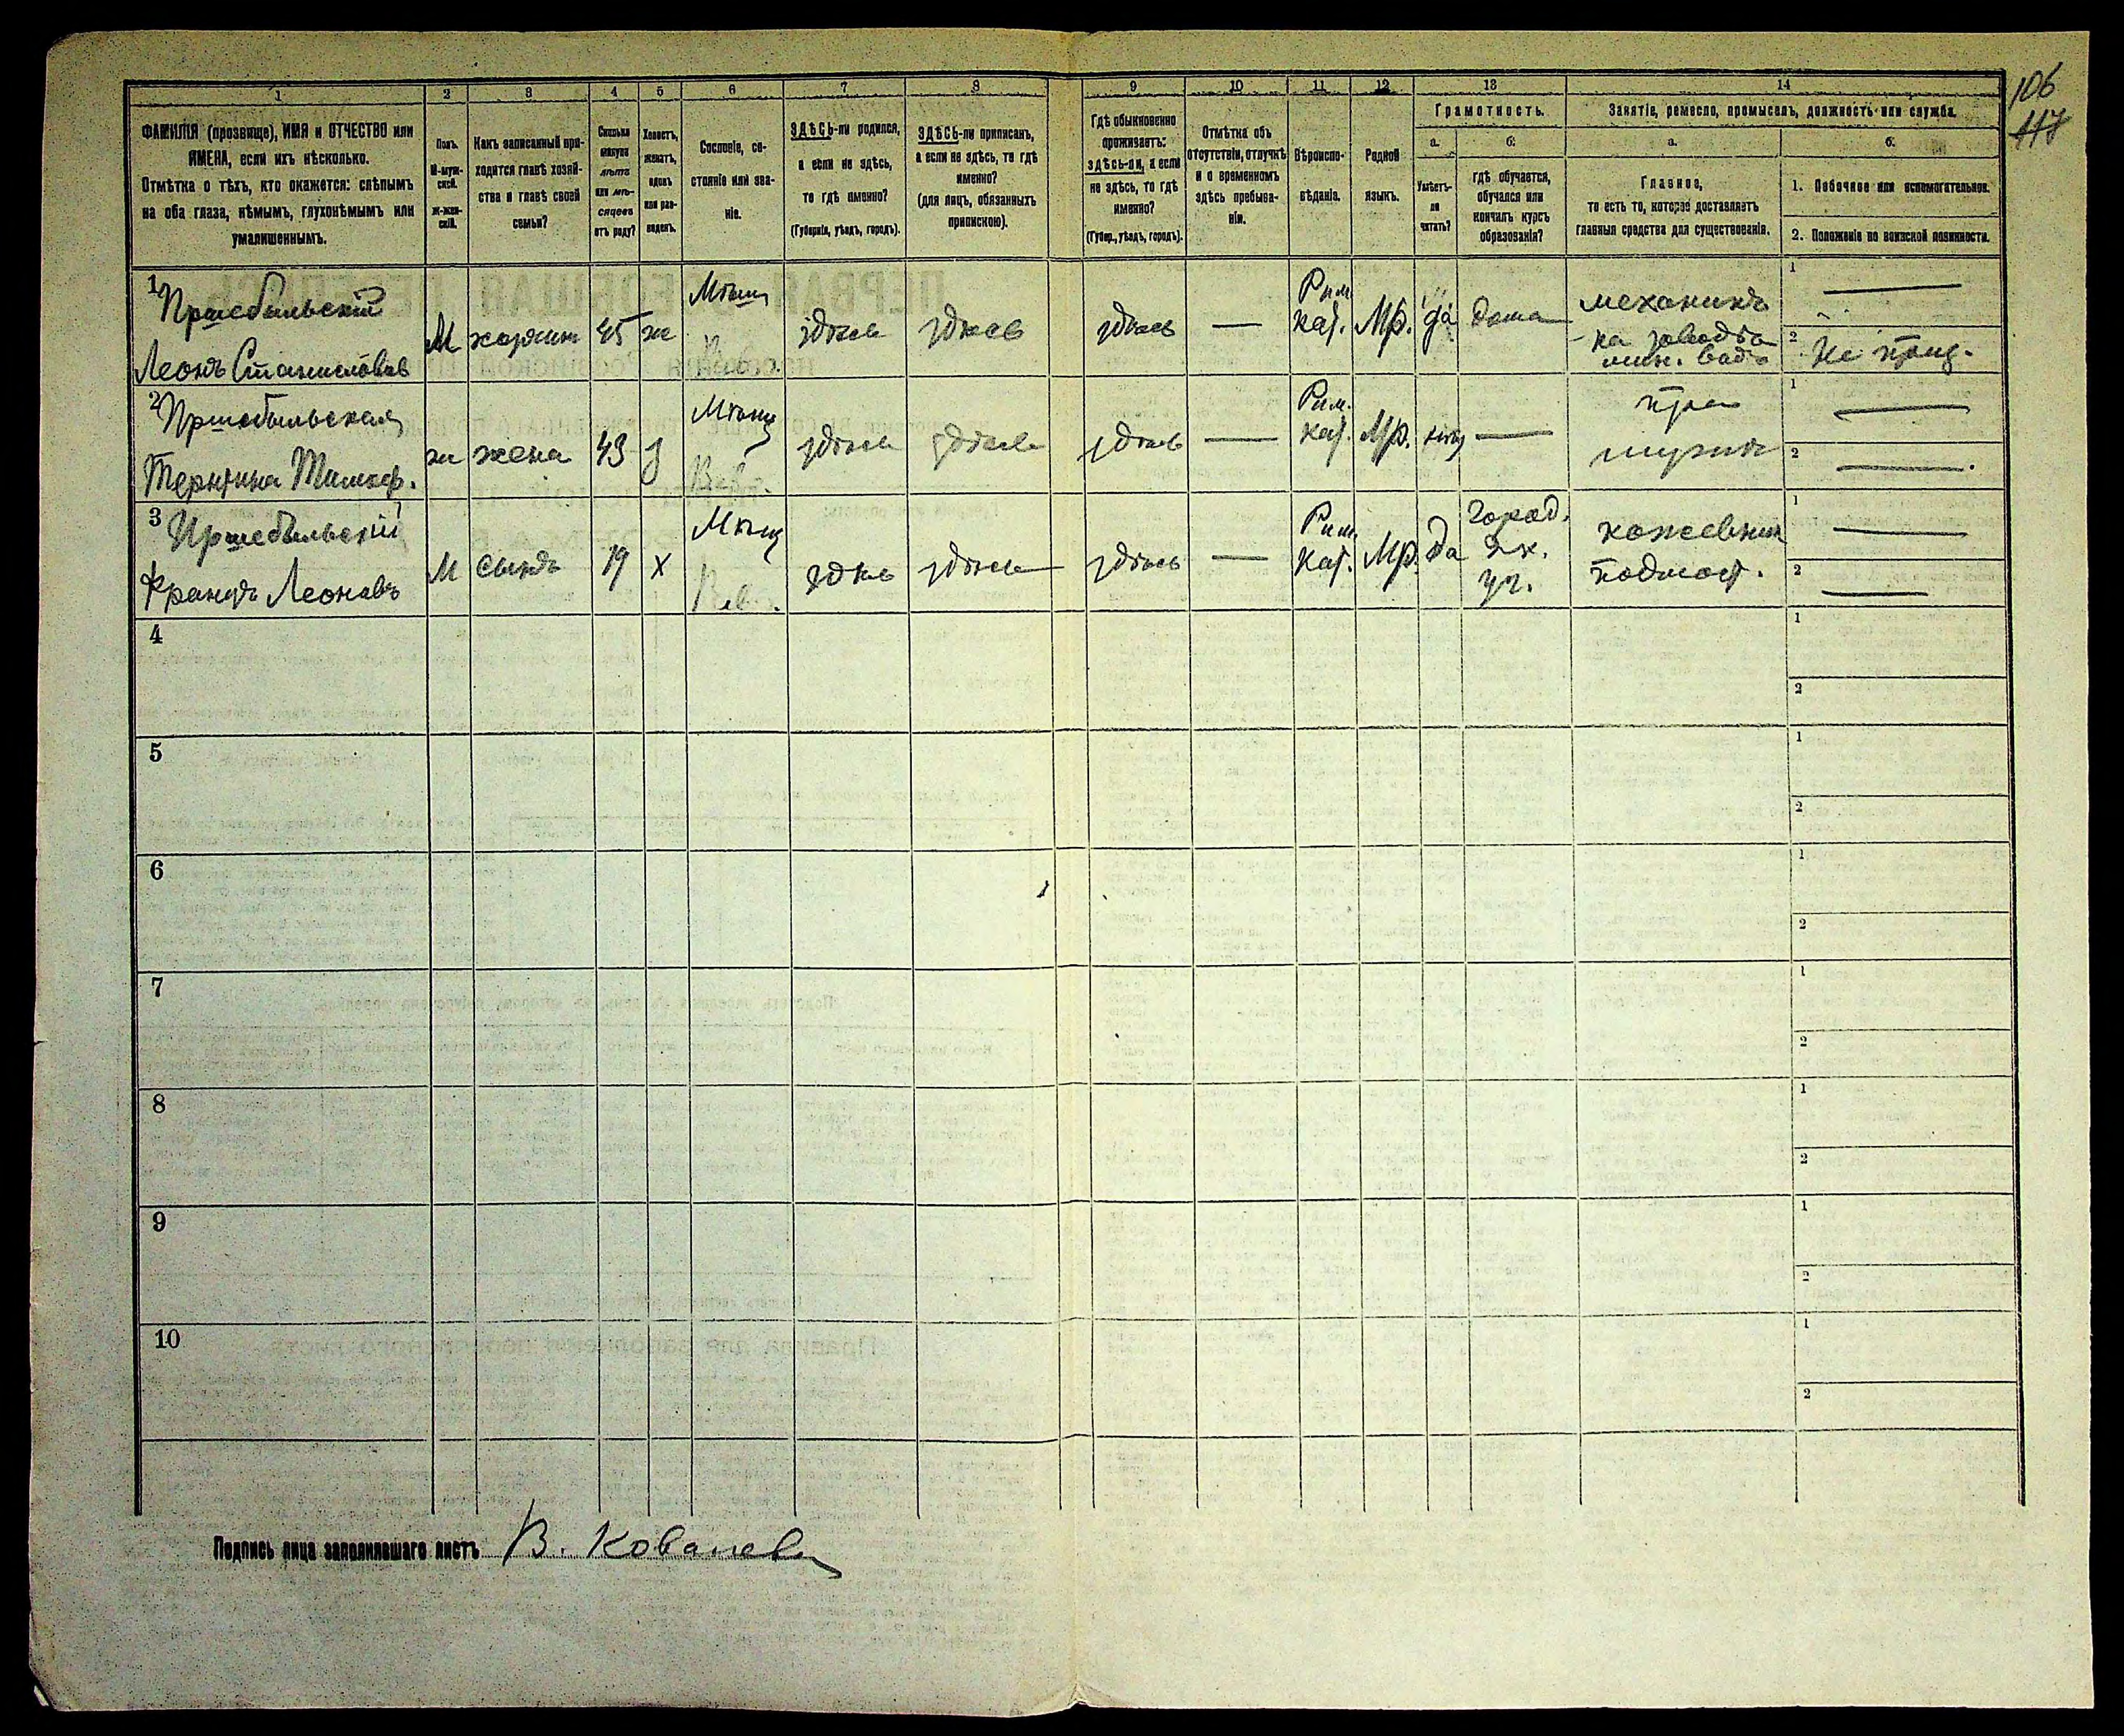 106
117
1 2 3 4 5 6 7 8 9 10 11 12 13 14
ФАМИЛІЯ (прозвище), ИМЯ и ОТЧЕСТВО или
ИМЕНА, если ихъ нѣсколько.
Отмѣтка о тѣхъ, кто окажется: слѣпымъ
на оба глаза, нѣмымъ, глухонѣмымъ или
умалишеннымъ.
Полъ.
М-муж-
ской.
ж-жен-
скій.
Какъ записанный при-
ходится главѣ хозяй-
ства и главѣ своей
семьи?
Сколько
минуло
лѣтъ
или мѣ-
сяцевъ
отъ роду?
Холостъ,
женатъ,
вдовъ
или раз-
веденъ.
Сословіе, со-
стояніе или зва-
ніе.
ЗДѢСЬ-ли родился,
а если не здѣсь,
то гдѣ именно?
(Губернія, уѣздъ, городъ).
ЗДѢСЬ-ли приписанъ,
а если не здѣсь, то гдѣ
именно?
(для лицъ, обязанныхъ
припискою).
Гдѣ обыкновенно
проживаетъ:
здѣсь-ли, а если
не здѣсь, то гдѣ
именно?
(Губер., уѣздъ, городъ).
Отмѣтка объ
отсутствіи, отлучкѣ
и о временномъ
здѣсь пребыва-
ніи.
Вѣроиспо-
вѣданіе.
Родной
языкъ.
Грамотность.
а.
Умѣетъ-
ли
читать?
б.
гдѣ обучается,
обучался или
кончилъ курсъ
образованія?
Занятіе, ремесло, промыселъ, должность или служба.
а.
Главное,
то есть то, которое доставляетъ
главныя средства для существованія.
б.
1. Побочное или вспомогательное.
2. Положеніе по воинской повинности.
1 Пршебыльскій
Леонъ Станиславовъ
М хозяинъ 45 ж Мѣщ здѣсь здѣсь здѣсь — Рим. кат. Мр. да дома
механикъ
на заводѣ
мин. водъ
1 —
2
2 Пршебыльская
ж жена 43 з Мѣщ здѣсь здѣсь здѣсь — Рим. кат. Мр. нѣт —
при
мужѣ
1 —
2 —
3 Пршебыльскій
Францъ Леоновъ
М сынъ 19 х Мѣщ здѣсь здѣсь здѣсь — Рим. кат. Мр. да
город.
2 к.
уч.
кожевник
подмаст.
1 —
2 —
4
1
2
5
1
2
6
1
2
7
1
2
8
1
2
9
1
2
10
1
2
Подпись лица заполнившаго листъ В. Ковалевъ